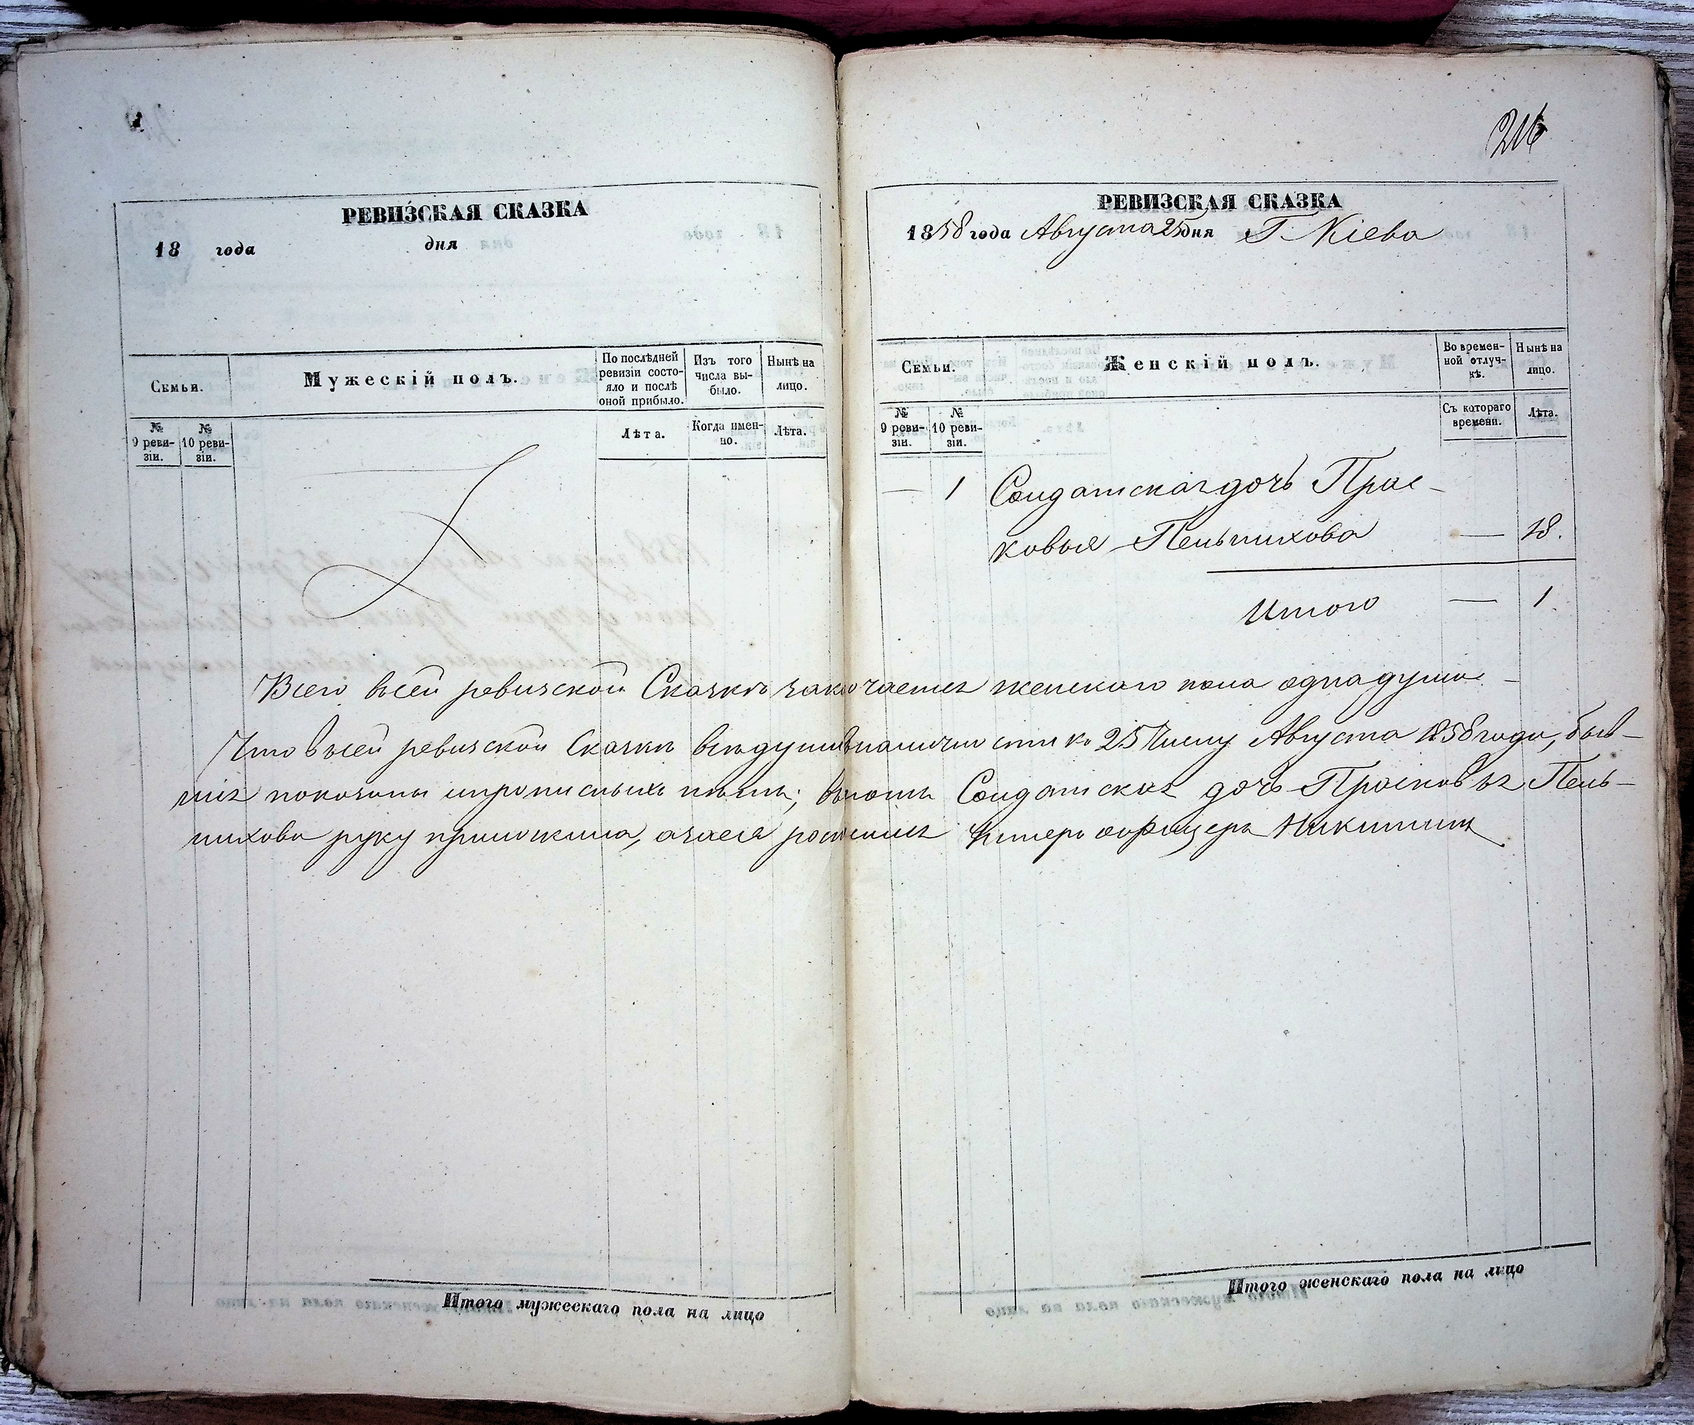 216
РЕВИЗСКАЯ СКАЗКА
18 года дня
Семьи.
Мужескій полъ.
По послѣдней ревизіи состояло и послѣ оной прибыло.
Изъ того числа выбыло.
Нынѣ на лицо.
№ 9 ревизіи.
№ 10 ревизіи.
Лѣта.
Когда именно.
Лѣта.
Итого мужескаго пола на лицо
РЕВИЗСКАЯ СКАЗКА
1858 года Августа 25 дня Г. Кіева
Семьи.
Женскій полъ.
Во временной отлучкѣ.
Нынѣ на лицо.
№ 9 ревизіи.
№ 10 ревизіи.
Съ котораго времени.
Лѣта.
— 1 Солдатская дочь Прас-
ковья Пельпихова — 18.
Итого — 1
Всего всей ревизской Сказкѣ заключается женскаго пола одна душа
Что въ сей ревизской Сказкѣ всѣ души въ наличности къ 25 числу Августа 1858 года, быв-
шія показаны и прописныхъ нѣтъ; въ томъ Солдатская дочь Прасковья Пель-
пихова руку приложила, а за нея росписался Унтеръ офицеръ Никитинъ
Итого женскаго пола на лицо